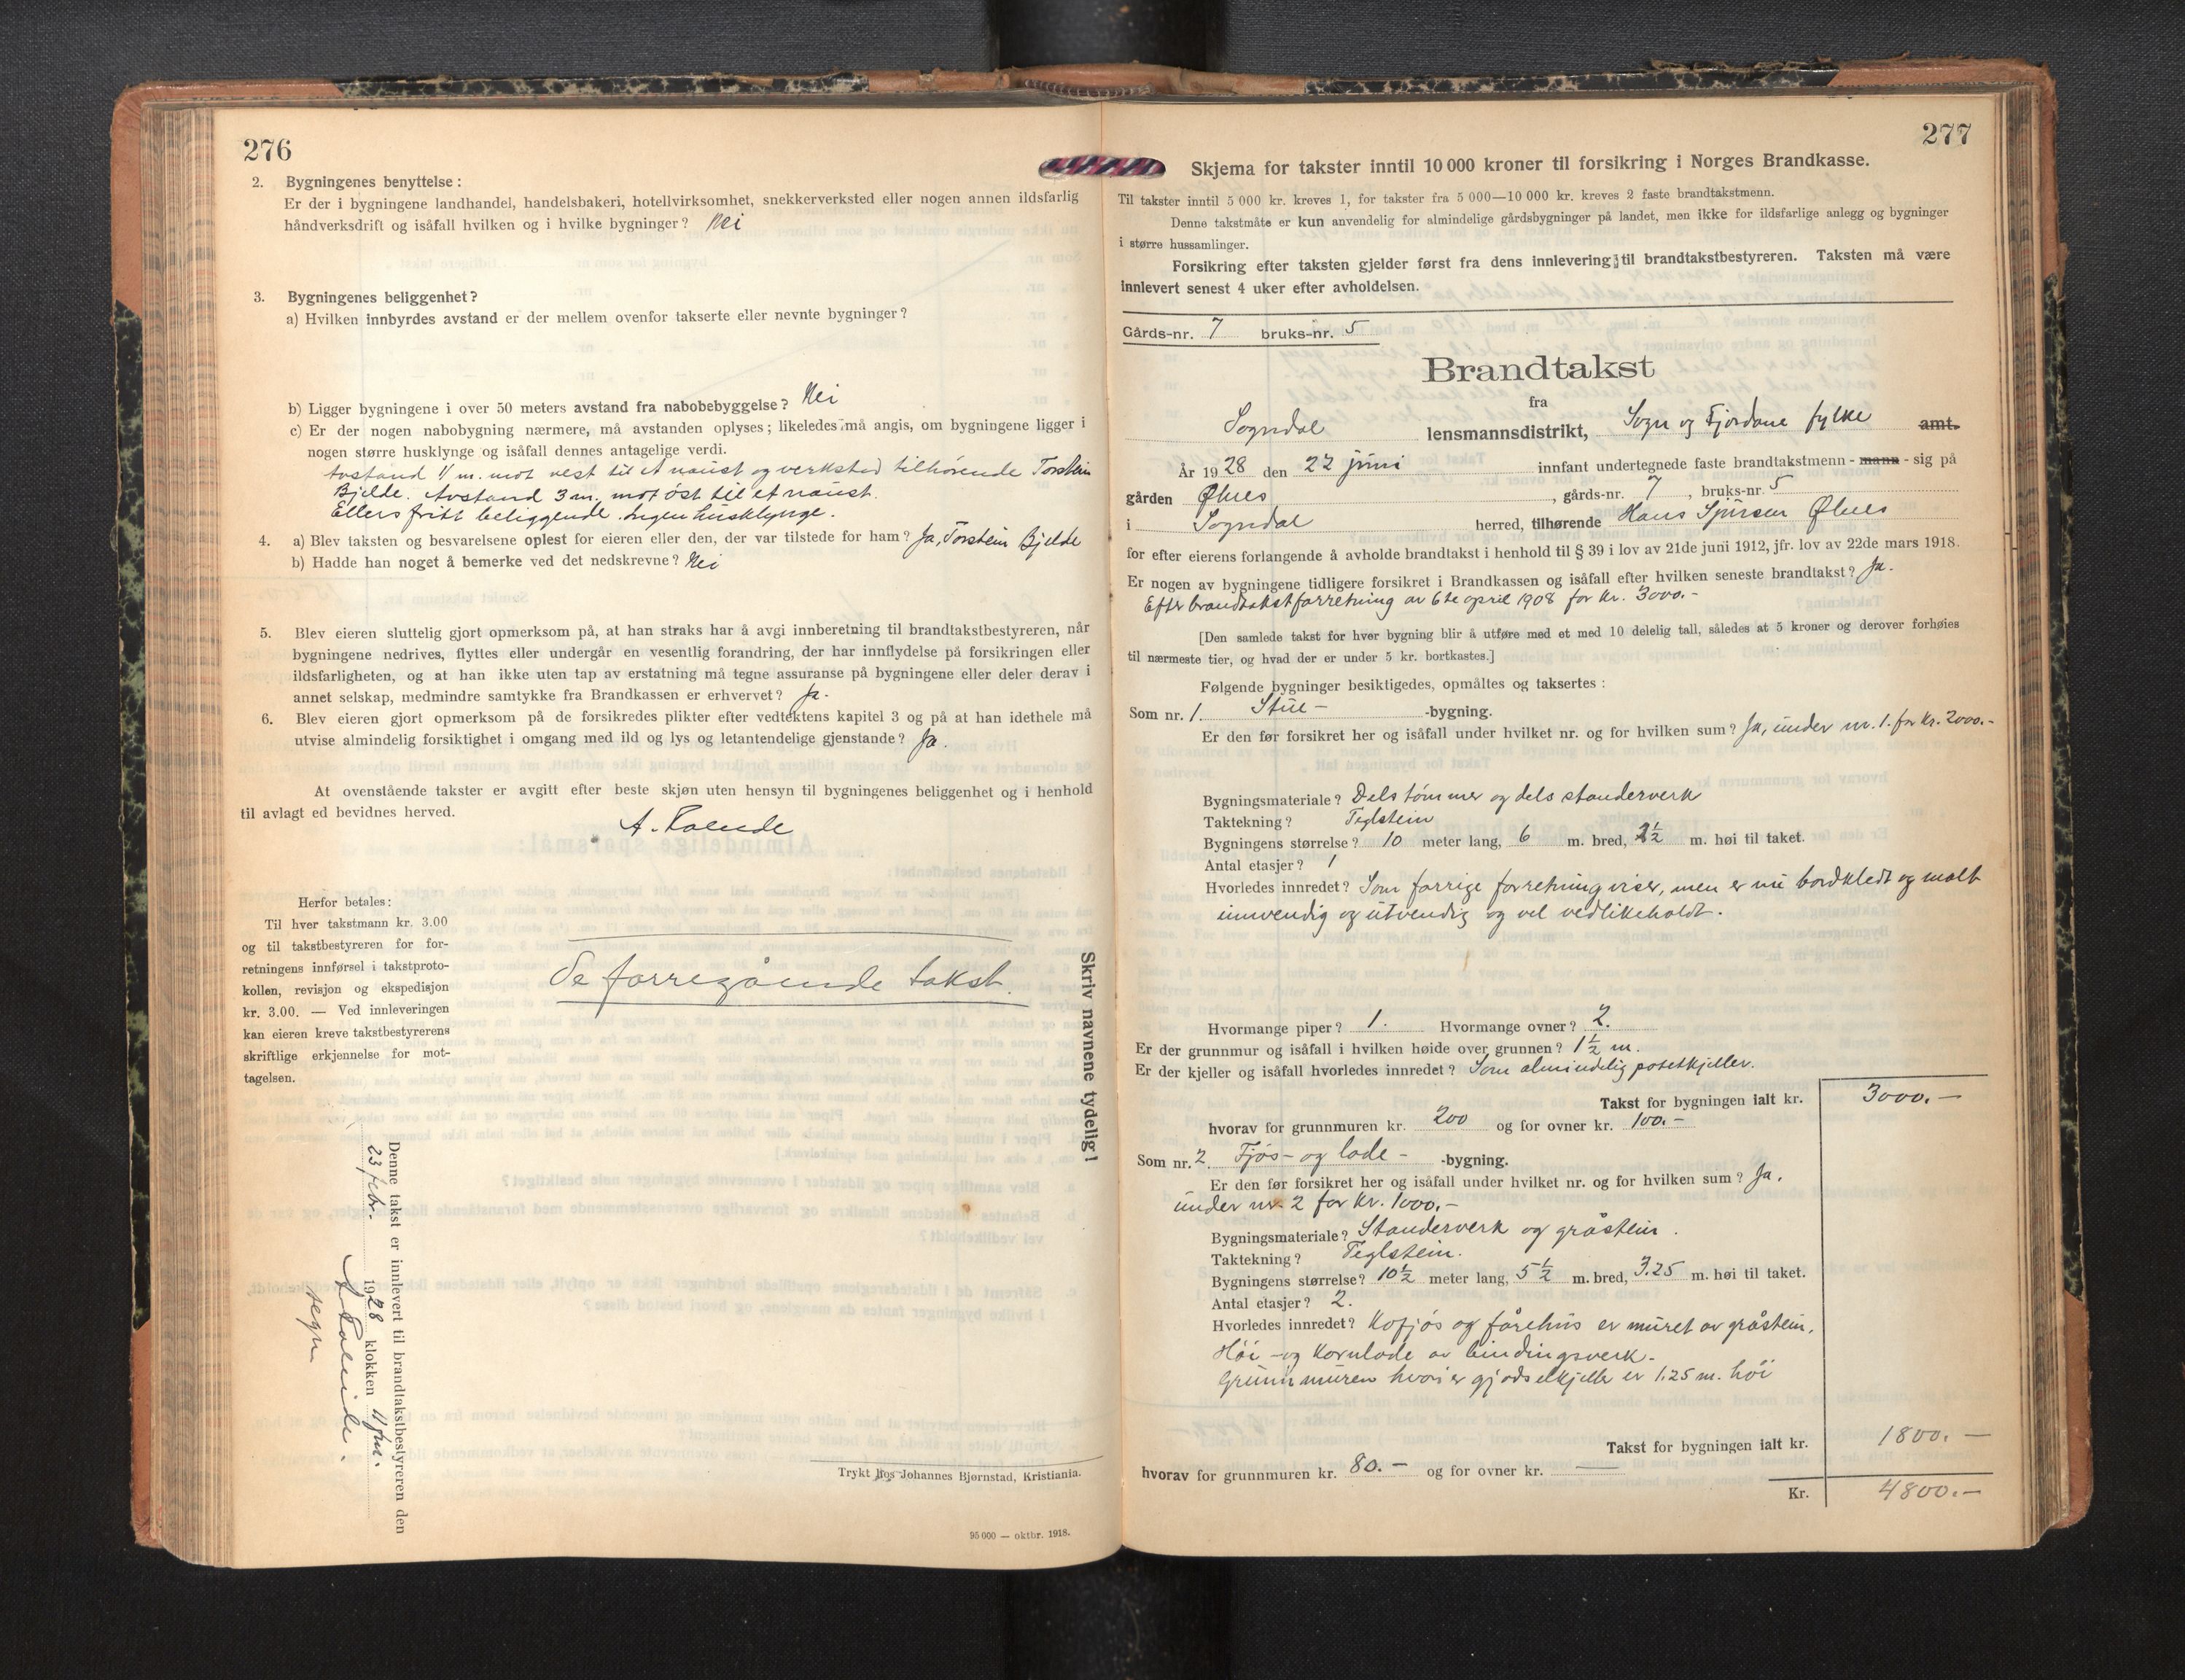 276
2. Bygningenes benyttelse:
Er der i bygningene landhandel, handelsbakeri, hotellvirksomhet, snekkerverksted eller nogen annen ildsfarlig
håndverksdrift og isåfall hvilken og i hvilke bygninger? Nei
3. Bygningenes beliggenhet?
a) Hvilken innbyrdes avstand er der mellem ovenfor takserte eller nevnte bygninger?
b) Ligger bygningene i over 50 meters avstand fra nabobebyggelse? Nei
c) Er der nogen nabobygning nærmere, må avstanden oplyses; likeledes må angis, om bygningene ligger i
nogen større husklynge og isåfall dennes antagelige verdi.
Avstand 11 m. mot vest til et naust og verksted tilhørende Torstein
Bjelde. Avstand 3 m. mot øst til et naust.
Ellers fritt beliggende. Ingen husklynge.
4. a) Blev taksten og besvarelsene oplest for eieren eller den, der var tilstede for ham? Ja, Torstein Bjelde
b) Hadde han noget å bemerke ved det nedskrevne? Nei
5. Blev eieren sluttelig gjort opmerksom på, at han straks har å avgi innberetning til brandtakstbestyreren, når
bygningene nedrives, flyttes eller undergår en vesentlig forandring, der har innflydelse på forsikringen eller
ildsfarligheten, og at han ikke uten tap av erstatning må tegne assuranse på bygningene eller deler derav i
annet selskap, medmindre samtykke fra Brandkassen er erhvervet? Ja.
6. Blev eieren gjort opmerksom på de forsikredes plikter efter vedtektens kapitel 3 og på at han idethele må
utvise almindelig forsiktighet i omgang med ild og lys og letantendelige gjenstande? Ja.
At ovenstående takster er avgitt efter beste skjøn uten hensyn til bygningenes beliggenhet og i henhold
til avlagt ed bevidnes herved.
A.
Herfor betales:
Til hver takstmann kr. 3.00
og til takstbestyreren for for-
retningens innførsel i takstproto-
kollen, revisjon og ekspedisjon
kr. 3.00. — Ved innleveringen
kan eieren kreve takstbestyrerens
skriftlige erkjennelse for mot-
tagelsen.
Se forregående takst.
Skriv navnene tydelig!
Denne takst er innlevert til brandtakstbestyreren den
23 febr. 1928 klokken 11 fm.
Trykt hos Johannes Bjørnstad, Kristiania.
95 000 — oktbr. 1918.
277
Skjema for takster inntil 10 000 kroner til forsikring i Norges Brandkasse.
Til takster inntil 5 000 kr. kreves 1, for takster fra 5 000—10 000 kr. kreves 2 faste brandtakstmenn.
Denne takstmåte er kun anvendelig for almindelige gårdsbygninger på landet, men ikke for ildsfarlige anlegg og bygninger
i større hussamlinger.
Forsikring efter taksten gjelder først fra dens innlevering til brandtakstbestyreren. Taksten må være
innlevert senest 4 uker efter avholdelsen.
Gårds-nr. 7 bruks-nr. 5
Brandtakst
fra
Sogndal lensmannsdistrikt, Sogn og Fjordane fylke amt.
År 1928 den 22 juni innfant undertegnede faste brandtakstmenn - mann - sig på
gården Ølnes, gårds-nr. 7, bruks-nr. 5
i Sogndal herred, tilhørende Hans Sjursen Ølnes
for efter eierens forlangende å avholde brandtakst i henhold til § 39 i lov av 21de juni 1912, jfr. lov av 22de mars 1918.
Er nogen av bygningene tidligere forsikret i Brandkassen og isåfall efter hvilken seneste brandtakst? Ja.
Efter brandtakstforretning av 6te april 1908 for kr. 3000.-
[Den samlede takst for hver bygning blir å utføre med et med 10 delelig tall, således at 5 kroner og derover forhøies
til nærmeste tier, og hvad der er under 5 kr. bortkastes.]
Følgende bygninger besiktigedes, opmåltes og taksertes:
Som nr. 1. Stue- -bygning.
Er den før forsikret her og isåfall under hvilket nr. og for hvilken sum? Ja, under nr. 1. for kr. 2000.-
Bygningsmateriale? Dels tømmer og dels standerverk
Taktekning? Teglstein
Bygningens størrelse? 10 meter lang, 6 m. bred, 2½ m. høi til taket.
Antal etasjer? 1
Hvorledes innredet? Som forrige forretning viser, men er nu bordkledt og malt
innvendig og utvendig og vel vedlikeholdt.
Hvormange piper? 1. Hvormange ovner? 2.
Er der grunnmur og isåfall i hvilken høide over grunnen? 1½ m.
Er der kjeller og isåfall hvorledes innredet? Som almindelig potetkjeller.
Takst for bygningen ialt kr. 3000.—
hvorav for grunnmuren kr. 200 og for ovner kr. 100.-
Som nr. 2. Fjøs- og lade- -bygning.
Er den før forsikret her og isåfall under hvilket nr. og for hvilken sum? Ja,
under nr. 2 for kr. 1000.-
Bygningsmateriale? Standerverk og gråstein.
Taktekning? Teglstein.
Bygningens størrelse? 10½ meter lang, 5½ m. bred, 3.25 m. høi til taket.
Antal etasjer? 2.
Hvorledes innredet? Kofjøs og fårehus er muret av gråstein.
Høi- og kornlade av bindingsverk.
Grunnmuren hvori er gjødselkjeller er 1.25 m. høi
Takst for bygningen ialt kr. 1800.—
hvorav for grunnmuren kr. 80.- og for ovner kr. —
Kr. 4800.—